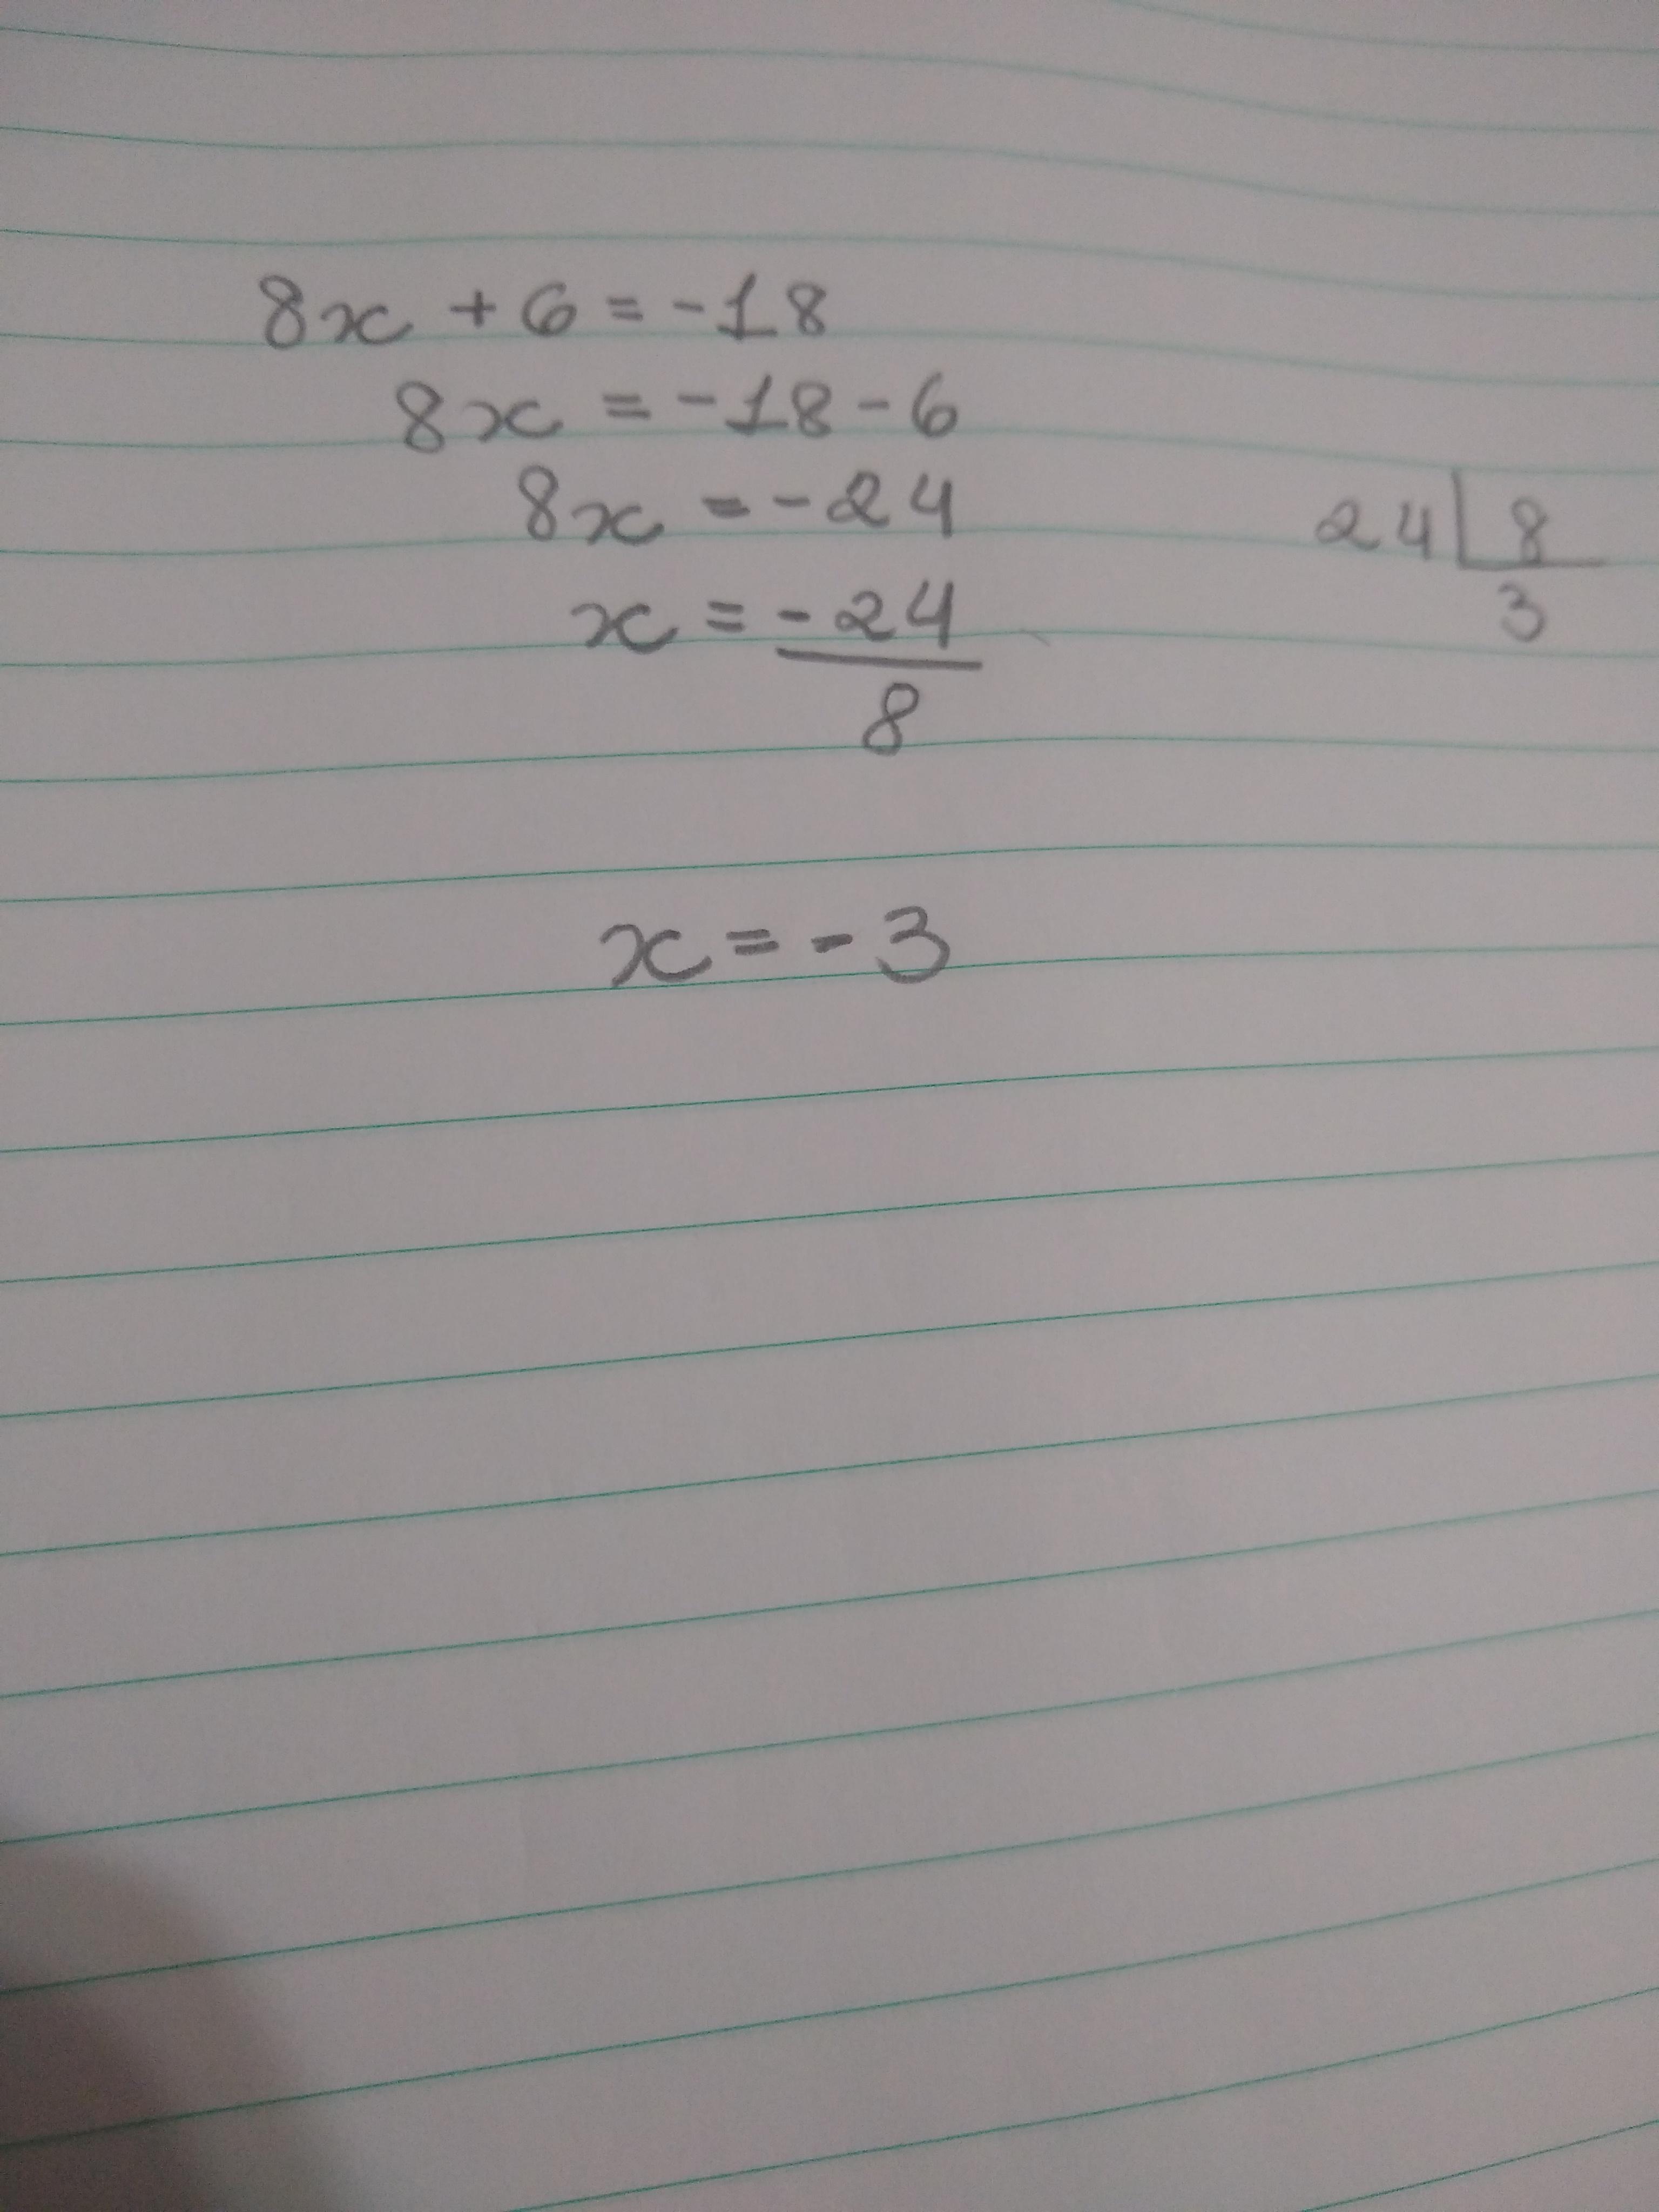 8x + 6 = -18
8x = -18 - 6
8x = -24
24 | 8
3
x = -24
8
x = -3